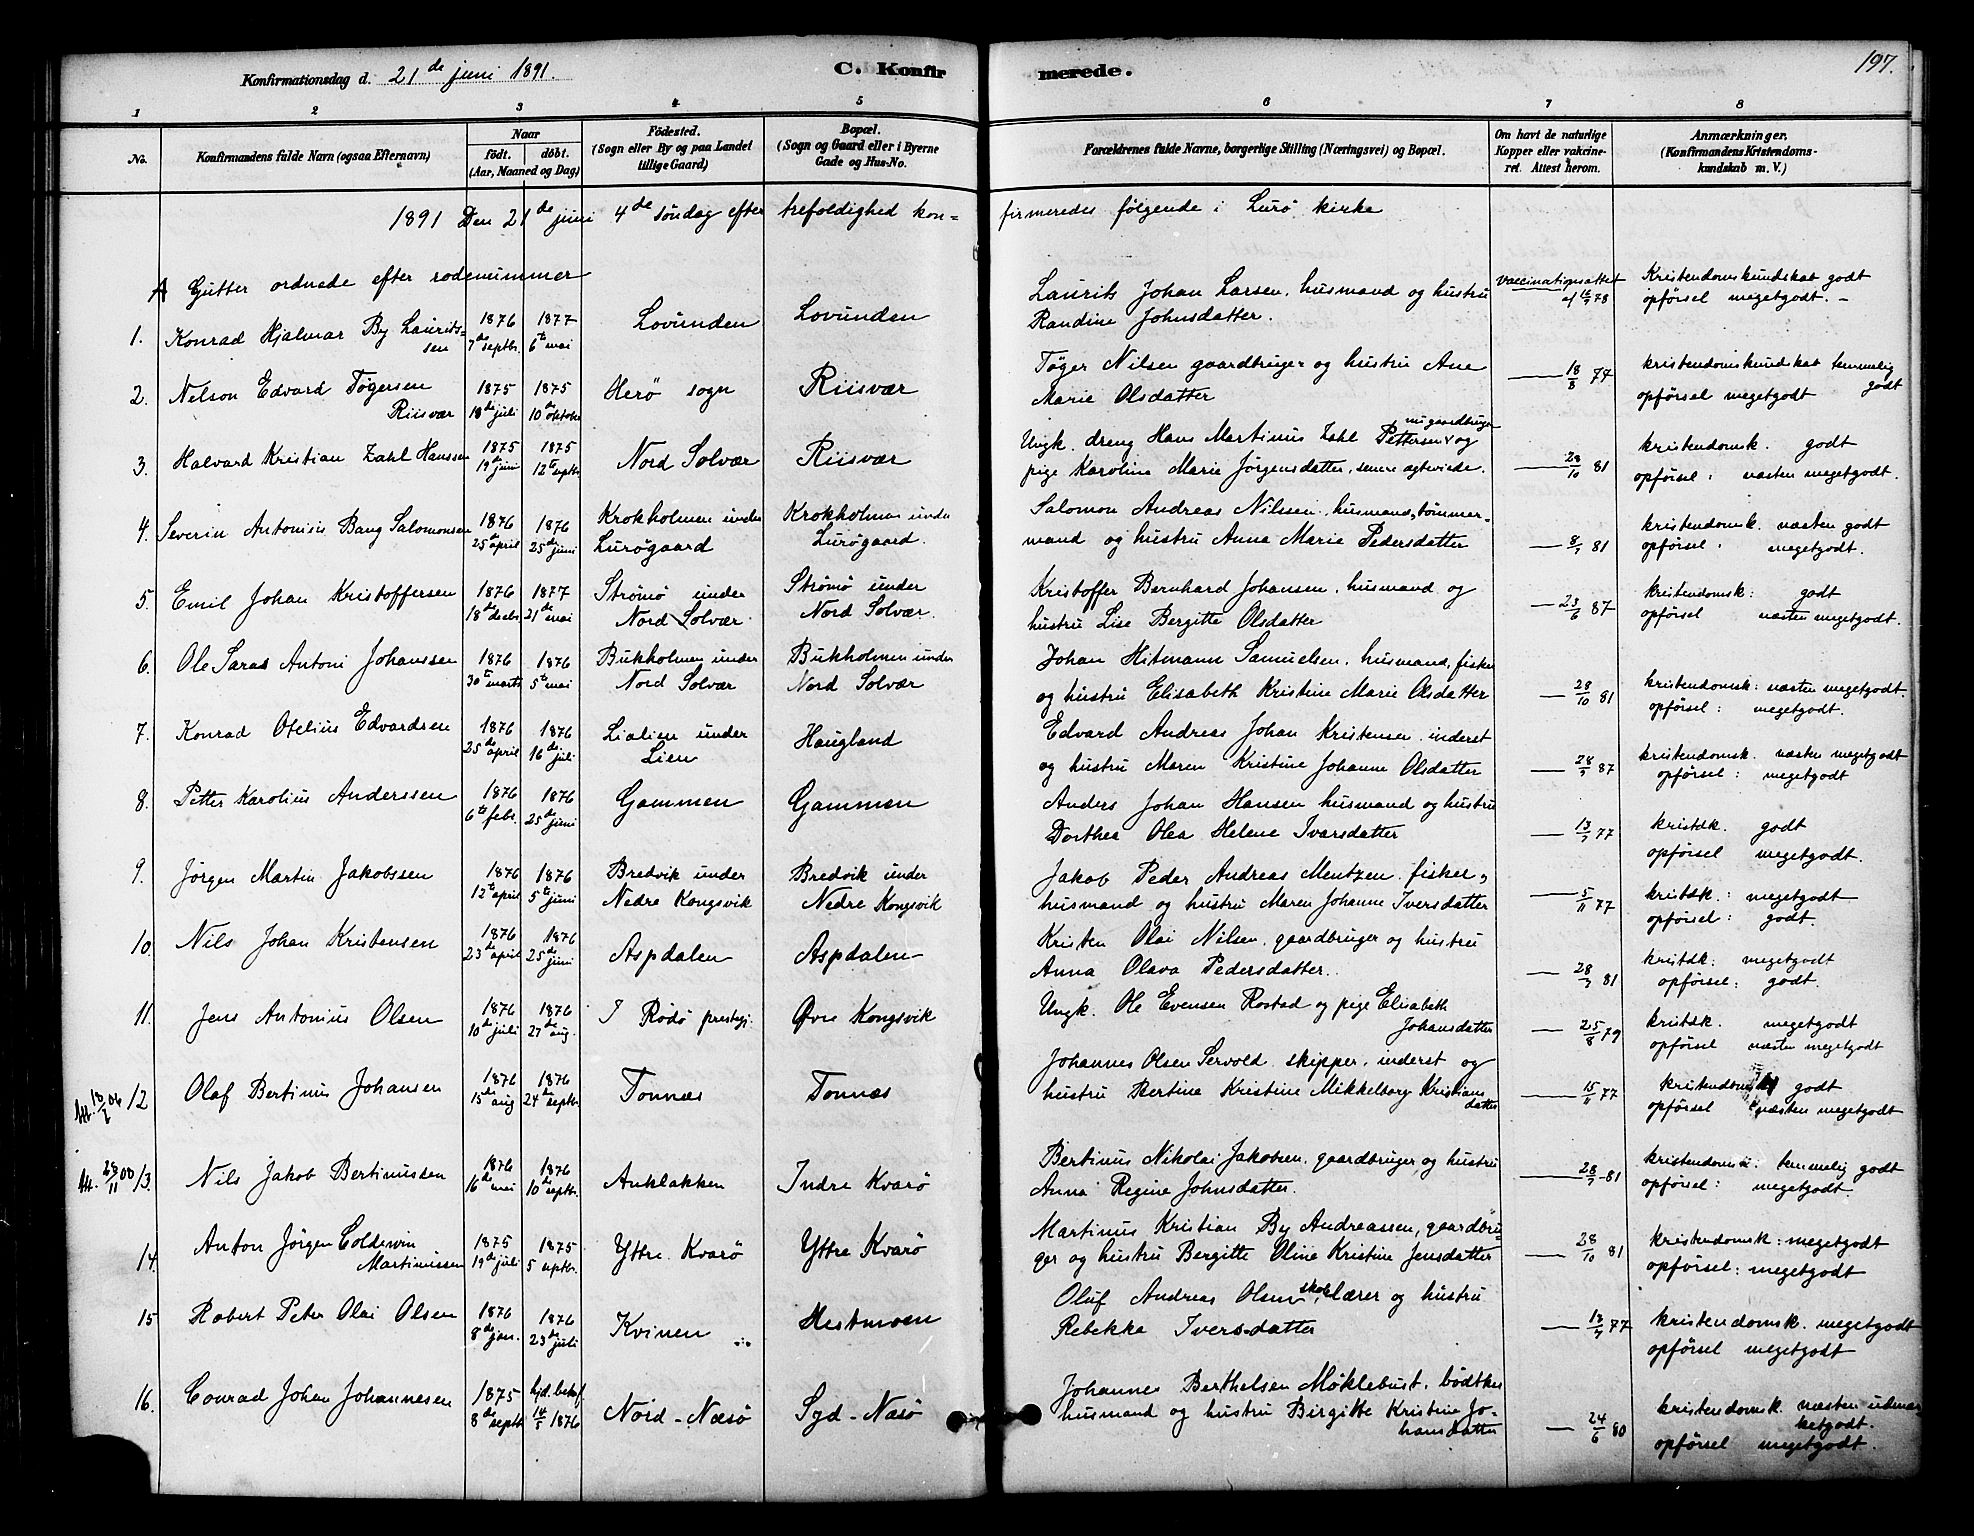 Konfirmationsdag d. 21de juni 1891.
C. Konfirmerede.
197.
1 2 3 4 5 6 7 8
No.
Konfirmandens fulde Navn (ogsaa Efternavn)
Naar
födt. döbt.
(Aar, Maaned og Dag)
Födested.
(Sogn eller By og paa Landet
tillige Gaard)
Bopæl.
(Sogn og Gaard eller i Byerne
Gade og Hus-No.
Forældrenes fulde Navne, borgerlige Stilling (Næringsvei) og Bopæl.
Om havt de naturlige
Kopper eller vakcine-
ret. Attest herom.
Anmærkninger.
(Konfirmandens Kristendoms-
kundskab m. V.)
1891 Den 21de juni 4de søndag efter trefoldighed kon-
firmeredes følgende i Lurö kirke
A Gutter ordnede efter rodenummer
1. Konrad Hjalmar By Laurits-
sen
1876 7de septbr. 1877 6te mai
Lovunden Lovunden
Laurits Johan Larsen, husmand og hustru
Randine Johnsdatter.
Vaccinationsattest
Kristendomskundskab godt
opførsel megetgodt. -
2. Nelson Edvard Tøgersen
Riisvær
1875 18de juli 1875 10de oktobr
Herö sogn Riisvær
Tøger Nilsen gaardbruger og hustru Ane
Marie Olsdatter
18/8 77
kristendomskundskab temmelig
godt
opførsel megetgodt
3. Halvard Kristian Zahl Hanssen
1875 19de juni 1875 12te septbr.
Nord Solvær Riisvær
Ungk. dreng Hans Martinus Zahl Pettersen nu gaardbruger og
pige Karoline Marie Jørgensdatter, senere ægteviede.
28/10 81
kristendomsk. godt
opførsel: næsten megetgodt.
4. Severin Antonius Bang Salomonsen
1876 25de april 1876 25de juni
Krokholmen under
Lurögaard
Krokholmen under
Lurögaard.
Salomon Andreas Nilssen, husmand, tømmer-
mand og hustru Anna Marie Pedersdatter
81
kristendomsk. næsten godt
opførsel. megetgodt.
5. Emil Johan Kristoffersen
1876 18de decbr. 1877 21de mai
Strömö under
Nord Solvær
Strömö under
Nord Solvær.
Kristoffer Bernhard Johansen, husmand og
hustru Lise Bergitte Olsdatter
23/6 87
kristendomsk: godt
opførsel næsten megetgodt.
6. Ole Saras Antoni Johanssen
1876 30te marts 1876 5te mai
Bukholmen under
Nord Solvær
Bukholmen under
Nord Solvær
Johan Hitmann Samuelsen, husmand, fisker
og hustru Elisabeth Kristine Marie Olsdatter
28/10 81
kristendomsk: næsten megetgodt.
opførsel: megetgodt.
7. Konrad Otelius Edvardsen
1876 25de april 1876 16de juli
Lialien under
Lien
Haugland
Edvard Andreas Johan Kristensen, inderst
og hustru Maren Kristine Johanne Olsdatter
87
kristendomsk. næsten megetgodt
opførsel: megetgodt
8. Petter Karolius Anderssen
1876 6te febr. 1876 25de juni
Gammen Gammen
Anders Johan Hansen husmand og hustru
Dorthea Olea Helene Ivarsdatter
77
kristdk. godt
opførsel megetgodt.
9. Jørgen Martin Jakobssen
1876 12te april 1876 5te juni
Bredvik under
Nedre Kongsvik
Bredvik under
Nedre Kongsvik
Jakob Peder Andreas Mentzen, fisker,
husmand og hustru Maren Johanne Iversdatter
5/11 77
kristdk: megetgodt
opførsel: godt.
10. Nils Johan Kristensen
1876 23de april 1876 25de juni
Aspdalen Aspdalen
Kristen Olai Nilsen, gaardbruger og hustru
Anna Olava Pedersdatter.
81
kristdk: megetgodt
opførsel: godt.
11. Jens Antonius Olsen
1876 10de juli 1876 27de aug.
I Rödö prestgj. Övre Kongsvik
Ungk. Ole Evensen Rostad og pige Elisabeth
Johansdatter
25/8 79
kristdk. megetgodt
opførsel næsten megetgodt
12 Olaf Bertinus Johansen
1876 15de aug 1876 24de septbr.
Tonnæs Tonnæs
Johannes Olsen Servold, skipper, inderst og
hustru Bertine Kristine Mikkelborg Kristians
datter
15/11 77
kristendomsk godt
opførsel næsten megetgodt
13. Nils Jakob Bertinussen
1876 16de mai 1876 10de septbr.
Anklakken Indre Kvarö
Bertinus Nikolai Jakobsen, gaardbruger og hustru
Anna Regine Johnsdatter.
81
kristendomsk: temmelig godt
opførsel: megetgodt.
14. Anton Jørgen Coldevin
Martinussen
1875 19de juli 1875 5 septbr.
Yttre Kvarö Yttre Kvarö
Martinus Kristian By Andreassen, gaardbru-
ger og hustru Bergitte Oline Kristine Jensdatter
28/10 81
kristendomsk: megetgodt
opførsel: megetgodt
15 Robert Peter Olai Olsen
1876 8de jan. 1876 23de juli
Kvinen Hestmoen
Oluf Andreas Olsen skolelærer og hustru
Rebekka Iversdatter
77
kristendomsk. megetgodt
opførsel megetgodt
16. Conrad Johan Johannesen
1875 8de septbr hjd. bekræf 1876
Nord-Næsö Syd-Næsö
Johannes Berthelsen Möklebust, bødtker
husmand og hustru Birgitte Kristine Jo-
hansdatter
24/6 80
kristendomsk næsten udmær
ketgodt.
opførsel megetgodt.